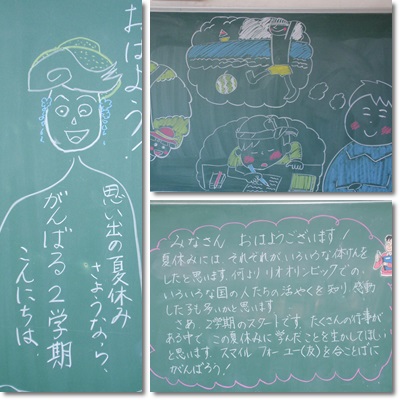 おはよう!
思い出の夏休み
さようなら、
がんばる2学期
こんにちは。
みなさん おはようございます!
夏休みには、それぞれがいろいろな体けんを
したと思います。何よりリオオリンピックでの、
いろいろな国の人たちの活やくを知り感動
した子も多いかと思います。
さあ、2学期のスタートです。たくさんの行事が
ある中で、この夏休みに学んだことを生かしてほしい
と思います。スマイル フォー ユー(友)を合ことばに
がんばろう!